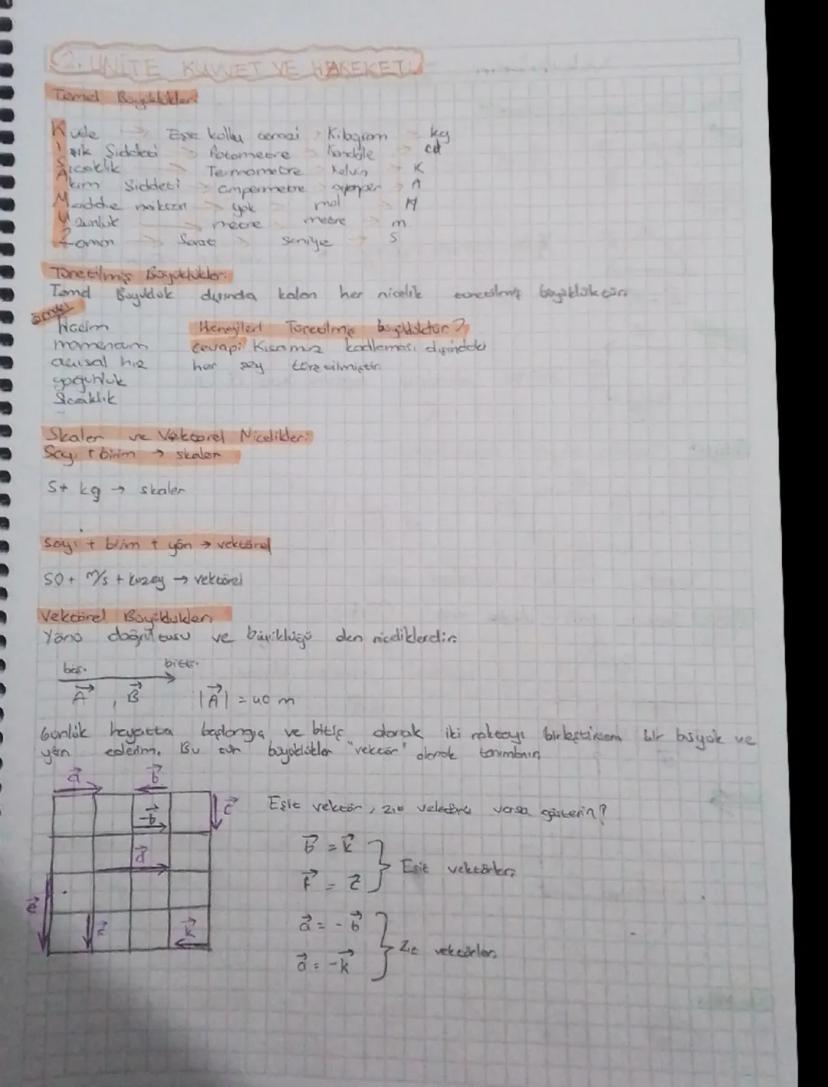 2. ÜNİTE KUVVET VE HAREKET
Temel Büyüklükler:
Kütle → Eşit kollu terazi → Kilogram → kg
Işık Şiddeti → Fotometre → Kandela → cd
Sıcaklık → Termometre → Kelvin → K
Akım Şiddeti → ampermetre → amper → A
Madde miktarı → yok → mol → M
Uzunluk → metre → metre → m
Zaman → Saat → saniye → s
Türetilmiş Büyüklükler:
Temel Büyüklük dışında kalan her nicelik türetilmiş büyüklüktür.
örnek
hacim
momentum
açısal hız
yoğunluk
Sıcaklık
Hangileri Türetilmiş büyüklüktür?
cevap: Kısamuz kodlaması dışındaki
her şey türetilmiştir
Skaler ve Vektörel Nicelikler:
Sayı + birim → skaler
5+ kg → skaler
Sayı + birim + yön → vektörel
50+ m/s + kuzey → vektörel
Vektörel Büyüklükler
Yönü doğrultusu ve büyüklüğü den niceliklerdir.
baş. bitiş.
A⃗ , B⃗ |A⃗| = 40 m
Günlük hayatta başlangıç ve bitiş olarak iki noktayı birleştirsem bir büyük ve
yön ederim. Bu tür büyüklükler "vektör" olarak tanımlanır
a⃗ b⃗
-b⃗ c⃗
d⃗
e⃗ k⃗
Eşit vektör, zıt vektörü varsa gösterin?
b⃗ = k⃗
f⃗ = c⃗
Eşit vektörler
a⃗ = -b⃗
a⃗ = -k⃗
Zıt vektörler